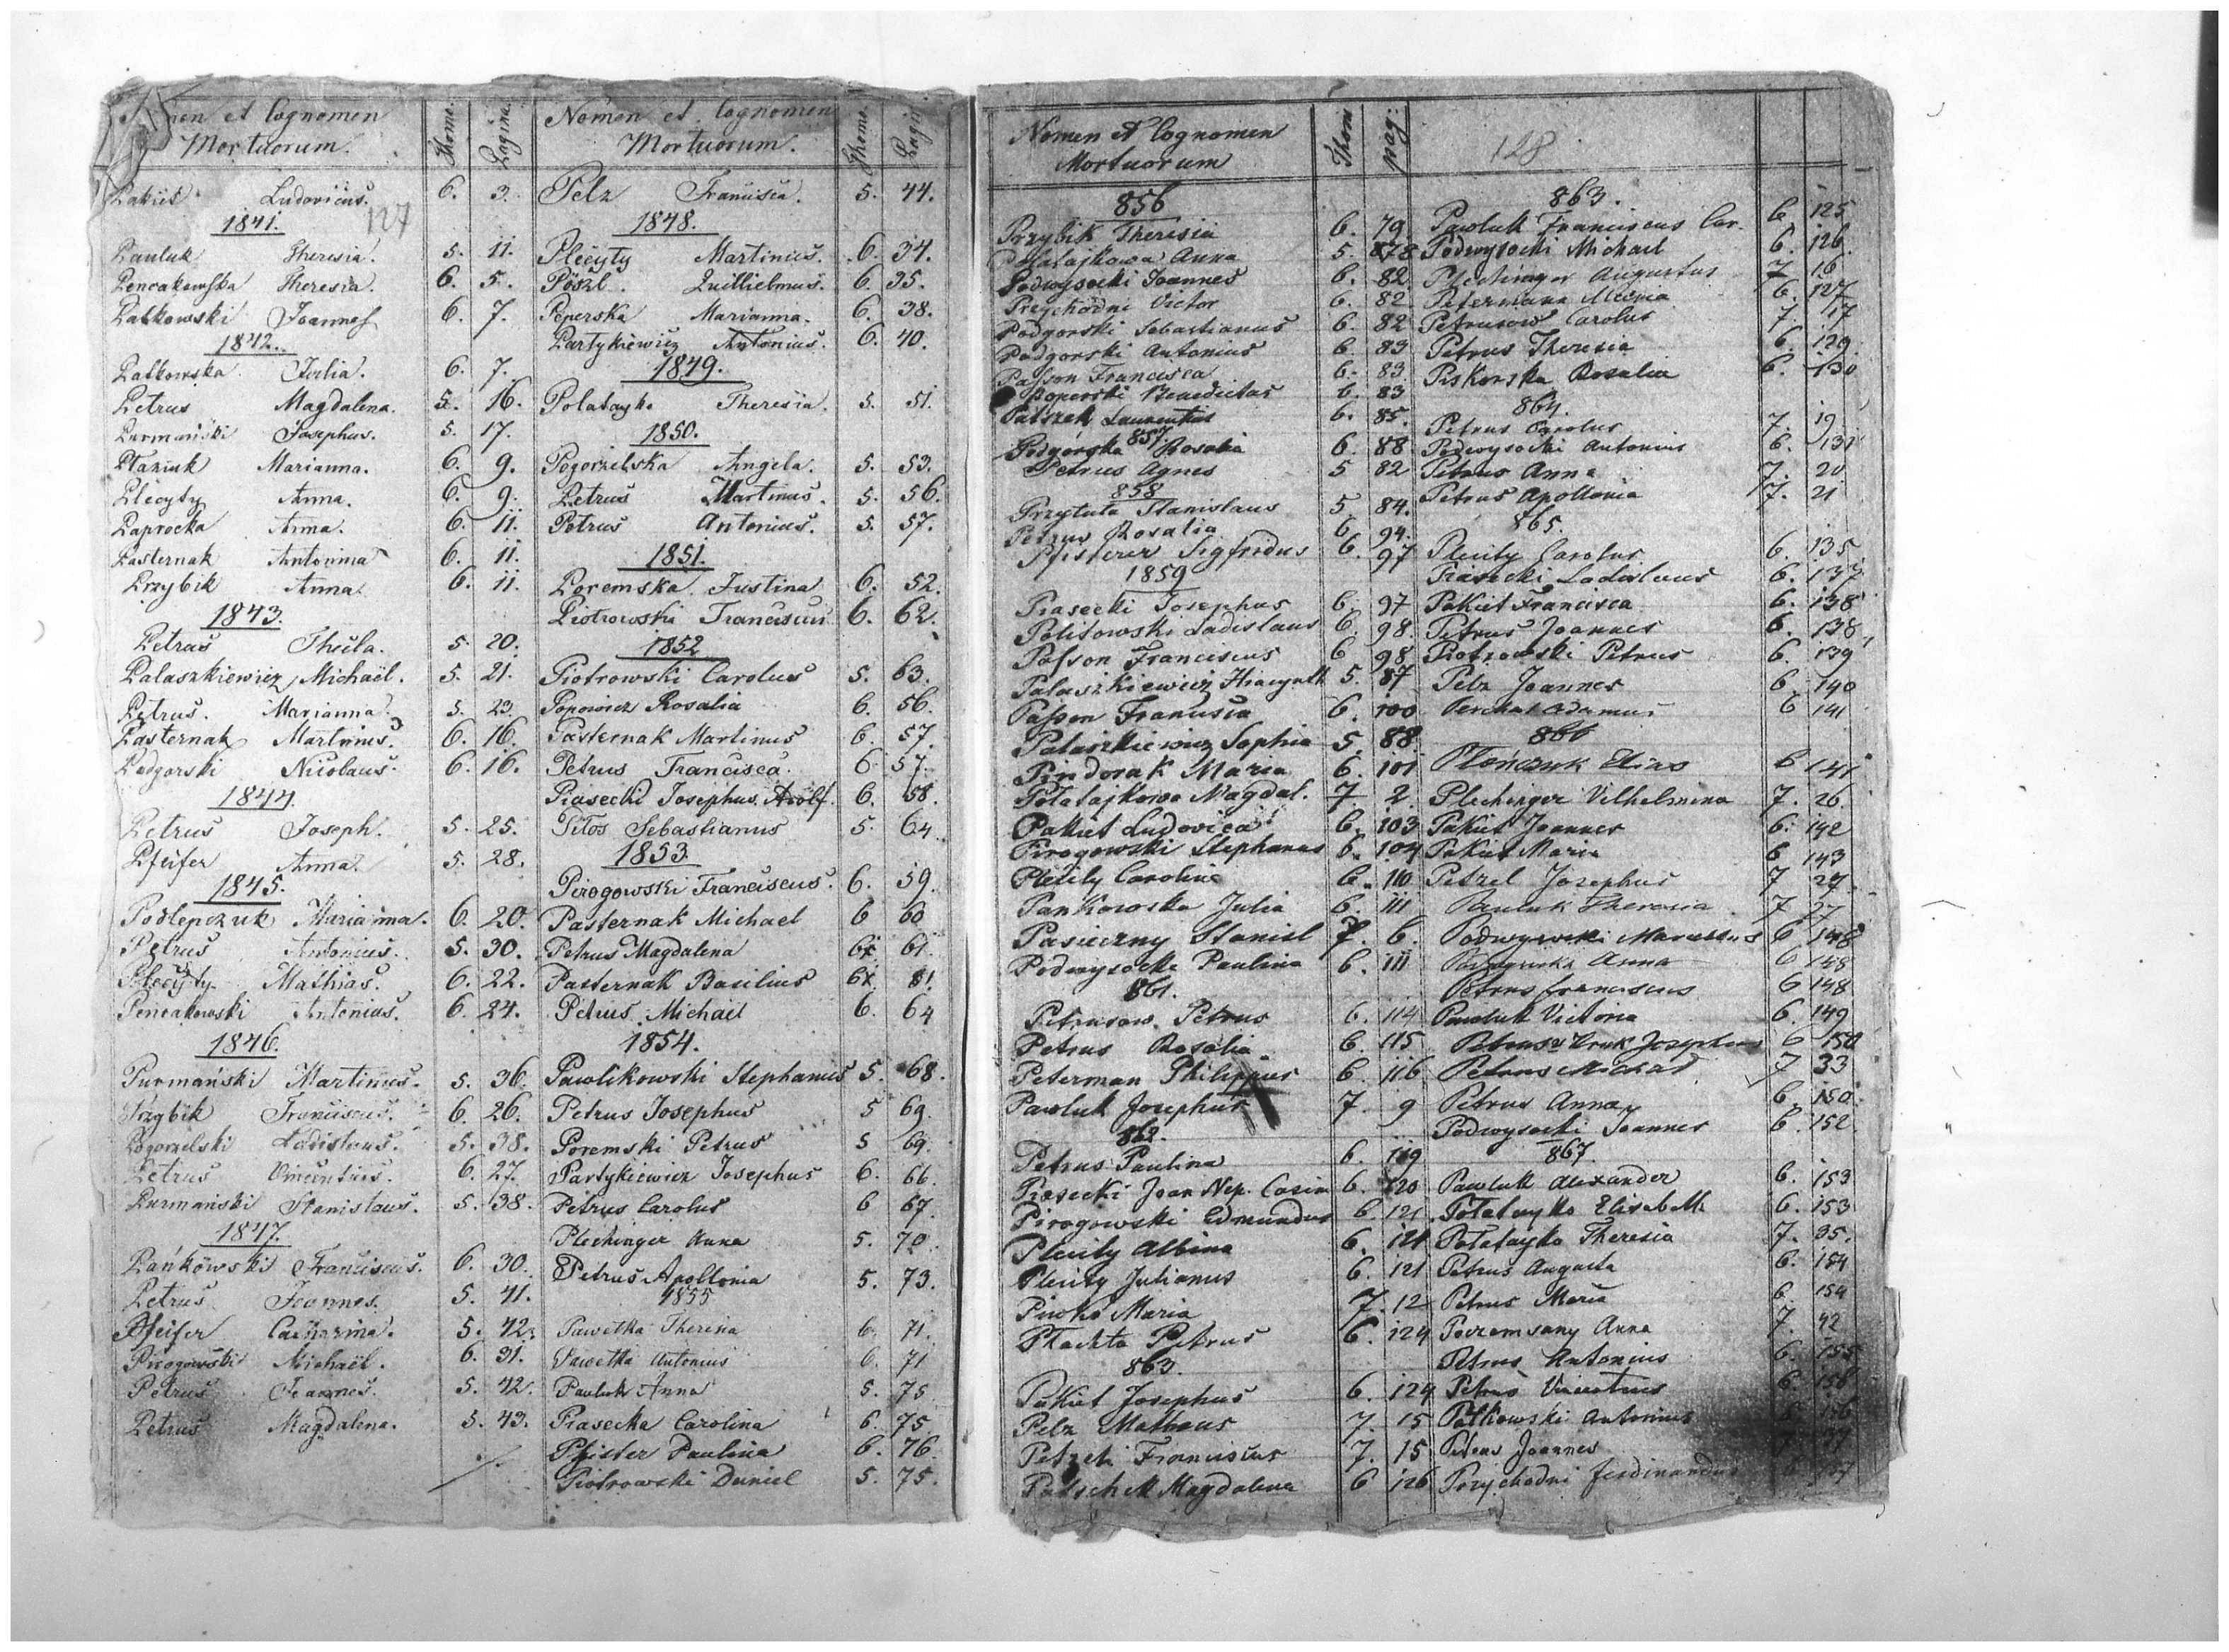 Nomen et Cognomen Mortuorum. Thom. Pagina
127
Pakiet Ludovicus. 6. 3.
1841.
Pauluk Theresia. 5. 11.
Pencakowska Theresia. 6. 5.
Patkowski Joannes 6. 7.
1842.
Patkowska Julia. 6. 7.
Petrus Magdalena. 5. 16.
Purmański Josephus. 5. 17.
Ptaziuk Marianna. 6. 9.
Plecyty Anna. 6. 9.
Paprocka Anna. 6. 11.
Pasternak Antonina 6. 11.
Przybik Anna. 6. 11.
1843.
Petrus Thecla. 5. 20.
Palaszkiewicz Michaël. 5. 21.
Petrus. Marianna. 5. 23.
Pasternak Martinus. 6. 16.
Podgorski Nicolaus. 6. 16.
1844.
Petrus Joseph. 5. 25.
Pfeifer Anna. 5. 28.
1845.
Podlepczuk Marianna. 6. 20.
Petrus Antonius. 5. 30.
Plecyty Mathias. 6. 22.
Pencakowski Antonius. 6. 24.
1846.
Purmański Martinus. 5. 36.
Przybik Franciscus. 6. 26.
Pogorzelski Ladislaus. 5. 38.
Petrus Vincentius. 6. 27.
Purmański Stanislaus. 5. 38.
1847.
Pańkowski Franciscus. 6. 30.
Petrus Joannes. 5. 41.
Pfeifer Catharina. 5. 42.
Pirogowski Michaël. 6. 31.
Petrus Joannes. 5. 42.
Petrus Magdalena. 5. 43.
Nomen et Cognomen Mortuorum. Thom. Pagin
Pelz Francisca. 5. 44.
1848.
Plecyty Martinus. 6. 34.
Pöszl. Quillielmus. 6. 35.
Peperska Marianna. 6. 38.
Partykiewicz Antonius. 6. 40.
1849.
Polatayko Theresia. 5. 51.
1850.
Pogorzelska Angela. 5. 53.
Petrus Martinus. 5. 56.
Petrus Antonius. 5. 57.
1851.
Poremska Justina 6. 52.
Piotrowski Franciscus 6. 62.
1852
Piotrowski Carolus 5. 63.
Popowicz Rosalia 6. 56.
Pasternak Martinus 6. 57.
Petrus Francisca. 6. 57.
Piasecki Josephus Adolf. 6. 58.
Pitos Sebastianus 5. 64.
1853.
Pirogowski Franciscus. 6. 59.
Pasternak Michael 6 60
Petrus Magdalena 61.
Pasternak Basilius
Petrus Michail 6. 64
1854.
Pawlikowski Stephanus 5. 68.
Petrus Josephus 5 69.
Poremski Petrus 5 69.
Partykiewicz Josephus 6. 66.
Petrus Carolus 6 67.
Plechinger Anna 5. 70.
Petrus Apollonia 5. 73.
1855
Pawetka Theresia 6. 71.
Pawetka Antonius 6. 71
Pauluk Anna 5. 75
Piasecka Carolina 6. 75.
Pfister Paulina 6. 76.
Piotrowski Daniel 5. 75.
Nomen et Cognomen Mortuorum Thom pag:
856
Przybik Theresia 6. 79.
Polatajkowa Anna 5.
Podwysocki Joannes 6. 82
Przychodni Victor 6. 82
Podgorski Sebastianus 6. 82
Podgorski Antonius 6. 83
Passon Francisca 6. 83
Poporski Benedictus 6. 83
Patszek Laurentius 6. 85.
857.
Podgórska Rosalia 6. 88
Petrus Agnes 5 82
858
Przytuła Stanislaus 5 84.
Petrus Rosalia 6 94.
Pfisterer Sigfridus 6. 97
1859
Piasecki Josephus 6. 97
Politowski Ladislaus 6 98.
Passon Franciscus 6 98
Palaszkiewicz Hiacynth 5. 87
Passon Francisca 6. 100
Palaszkiewicz Sophia 5. 88.
Pindorak Maria 6. 101
Polatajkowa Magdal. 7. 2.
Pakiet Ludovica 6. 103
Pirogowski Stephanus 6. 104
Plecity Carolina 6. 110
Pankowska Julia 6. 111
Pasieczny Stanisl 7. 6.
Podwysocka Paulina 6. 111
861.
Petrusow Petrus 6. 114
Petrus Rosalia 6. 115
Peterman Philippus 6. 116
Pawluk Josephus 7. 9
862.
Petrus Paulina 6. 119
Piasecki Joan Nep. Casim 6. 120
Pirogowski Edmundus 6. 121
Plecity Albina 6. 121
Plecity Julianus 6. 121
Piwko Maria 7. 12
Płachta Petrus 6. 124
863.
Pakiet Josephus 6. 124
Pelz Matheus 7. 15
Petzel Franciscus 7. 15
Patschek Magdalena 6 126
128
863.
Pawluk Franciscus Car. 6. 125
Podwysocki Michael 6. 126
Plechinger Augustus 7. 16
Petermann Alesia 6. 127
Petrusow Carolus 7. 17
Petrus Theresia 6. 129.
Piskorska Rosalia 6. 130
864.
Petrus Carolus 7. 19
Podwysocki Antonius 6. 131
Petrus Anna 7. 20
Petrus Apollonia 7. 21
865.
Plecity Carolus 6. 135
Piasecki Ladislaus 6. 137
Pakiet Francisca 6. 138
Petrus Joannes 6. 138
Piotrowski Petrus 6. 139
Pelz Joannes 6. 140
Adamus 6 141
866
Elias 6 141
Plechinger Vilhelmina 7. 26.
Pakiet Joannes 6. 142
Pakiet Maria 6 143
Petzel Josephus 7 27.
Pauluk Theresia 7 27
Podwysocki Marcellus 6 148
Anna 6 148
Petrus Franciscus 6 148
Pawluk Victoria 6. 149
Josephus 6 150
Petrus Michael 7 33
Petrus Anna 6. 150.
Podwysocki Joannes 6. 152.
867.
Pawluk Alexander 6. 153
Połatayko Elisabeth 6. 153
Połatayko Theresia 7. 35.
Petrus Augusta 6. 154
Petrus Maria 6. 154
Anna 7. 42
Petrus Antonius 6. 155
Petrus Vincentius 6. 156
Patkowski Antonius
Petrus Joannes
Przychodni Ferdinandus